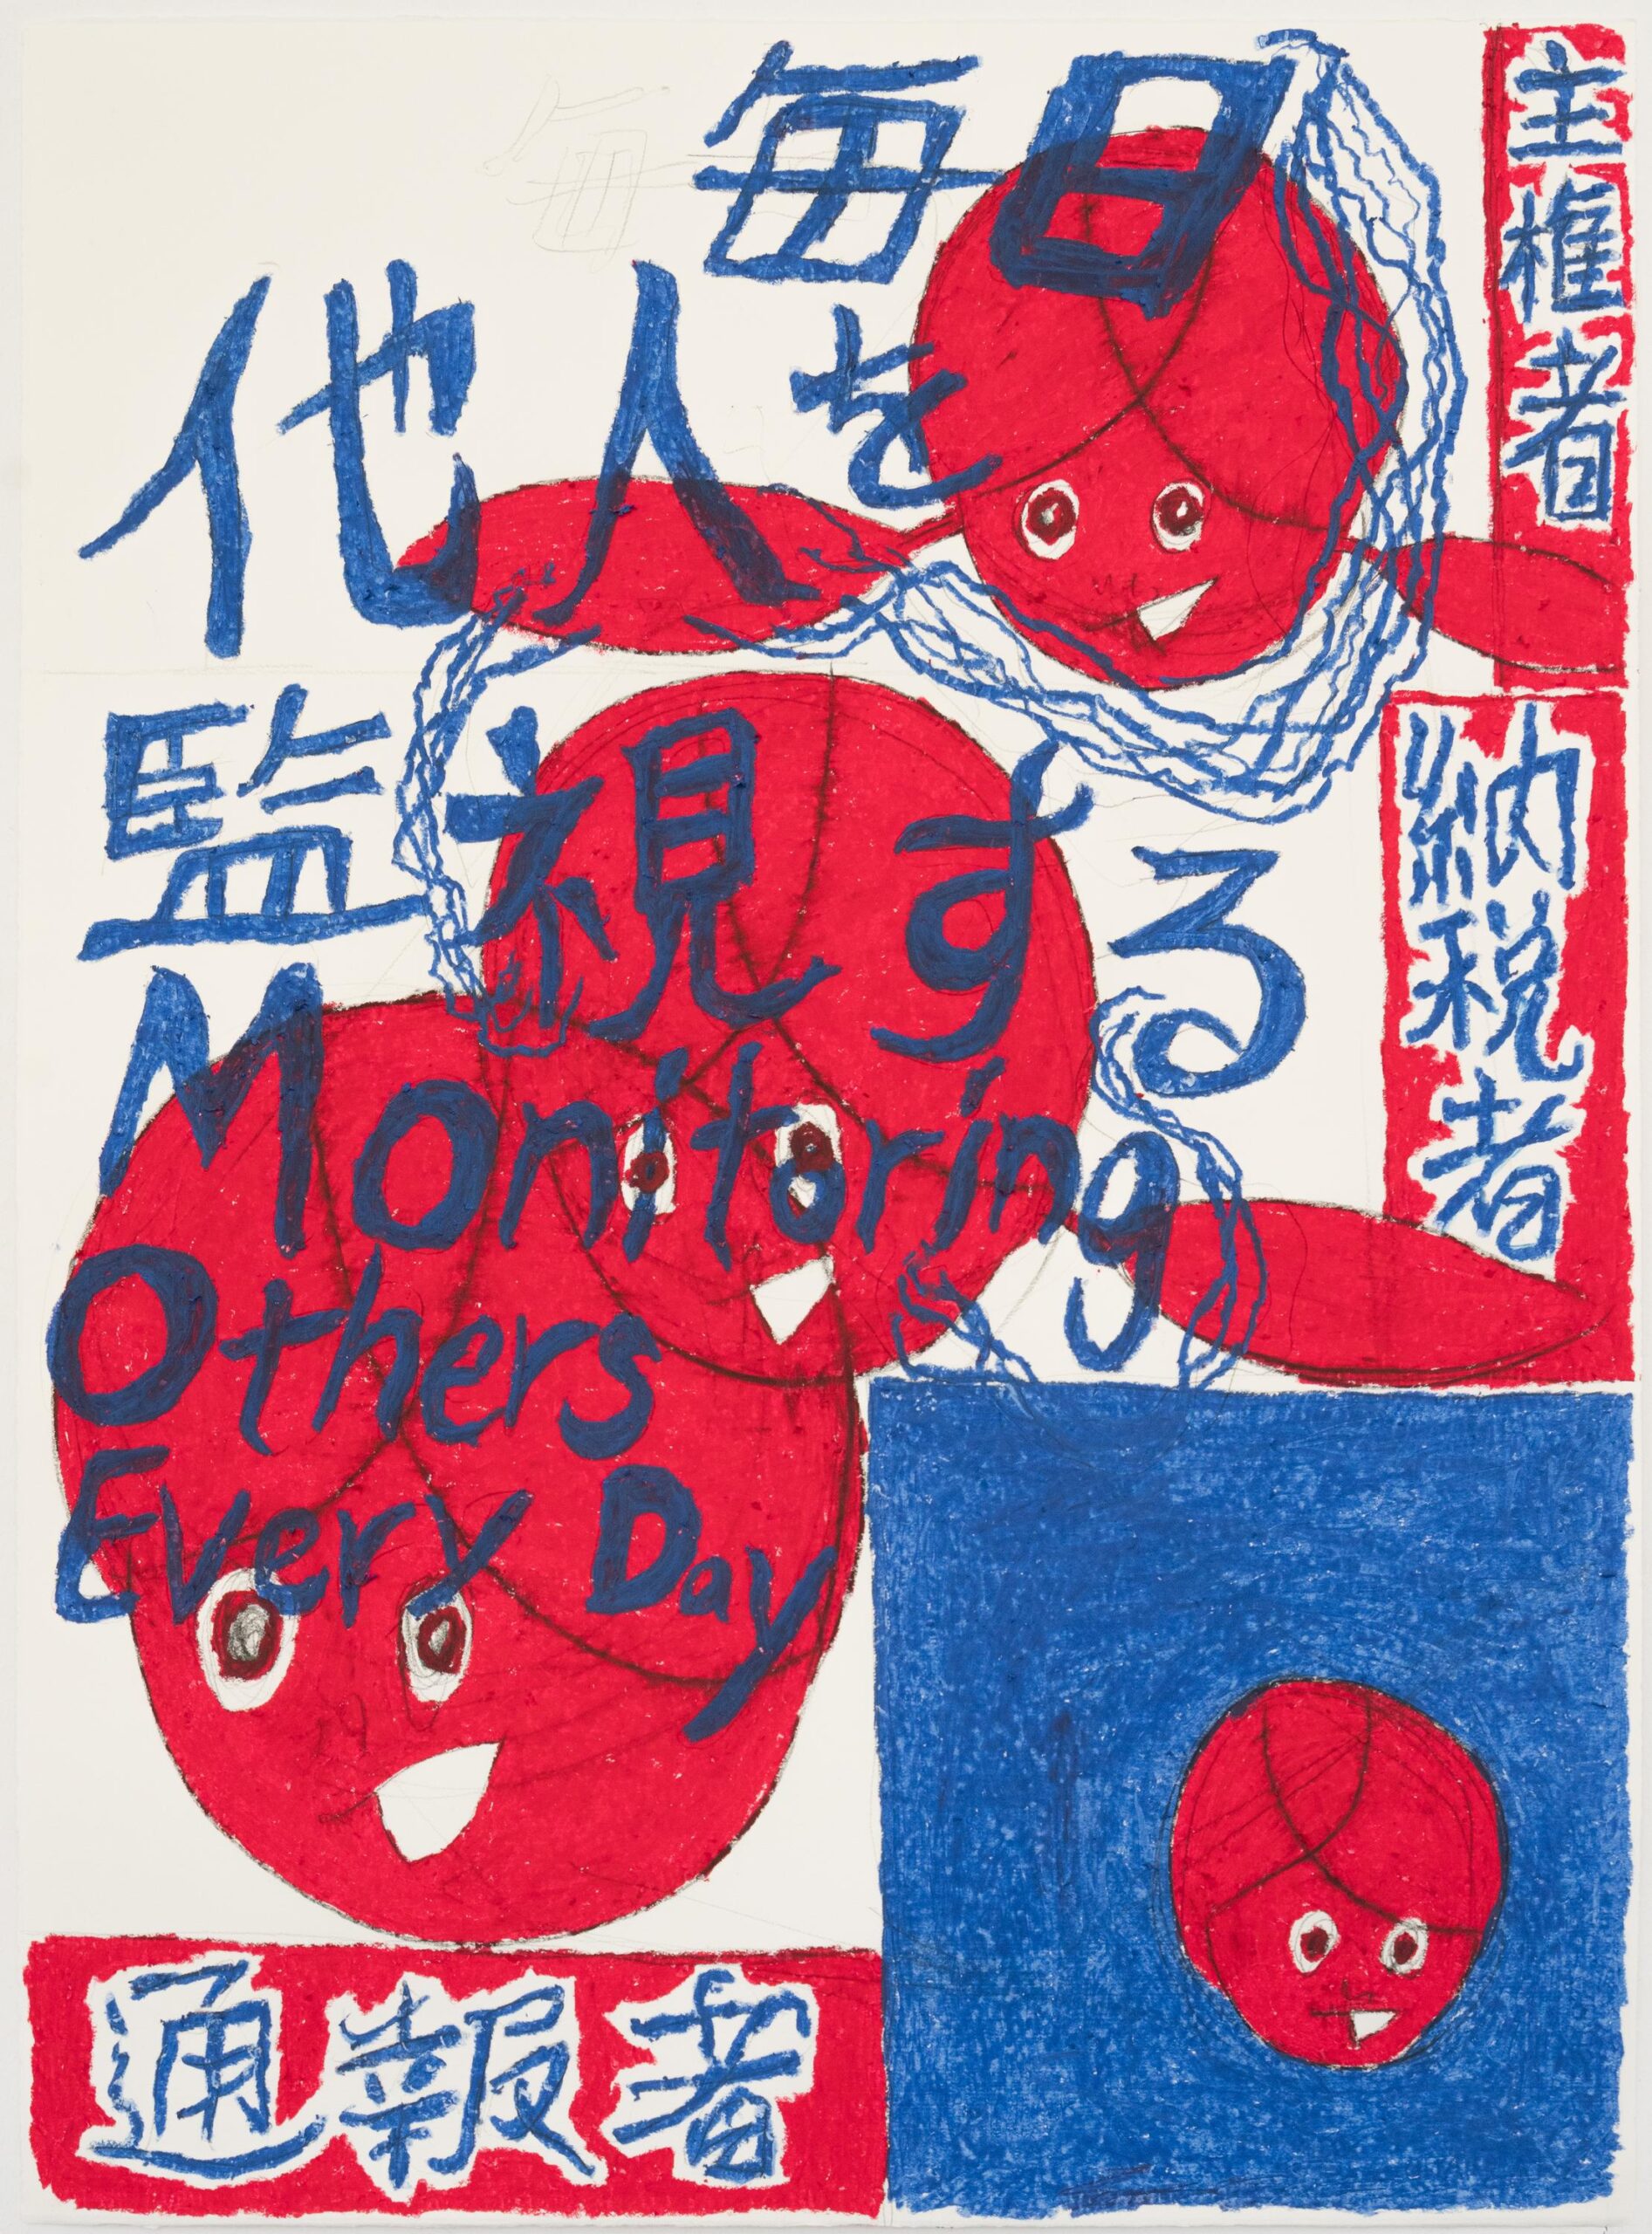 毎日
他人を
監視する
Monitoring
Others
Every Day
主権者
納税者
通報者
毎